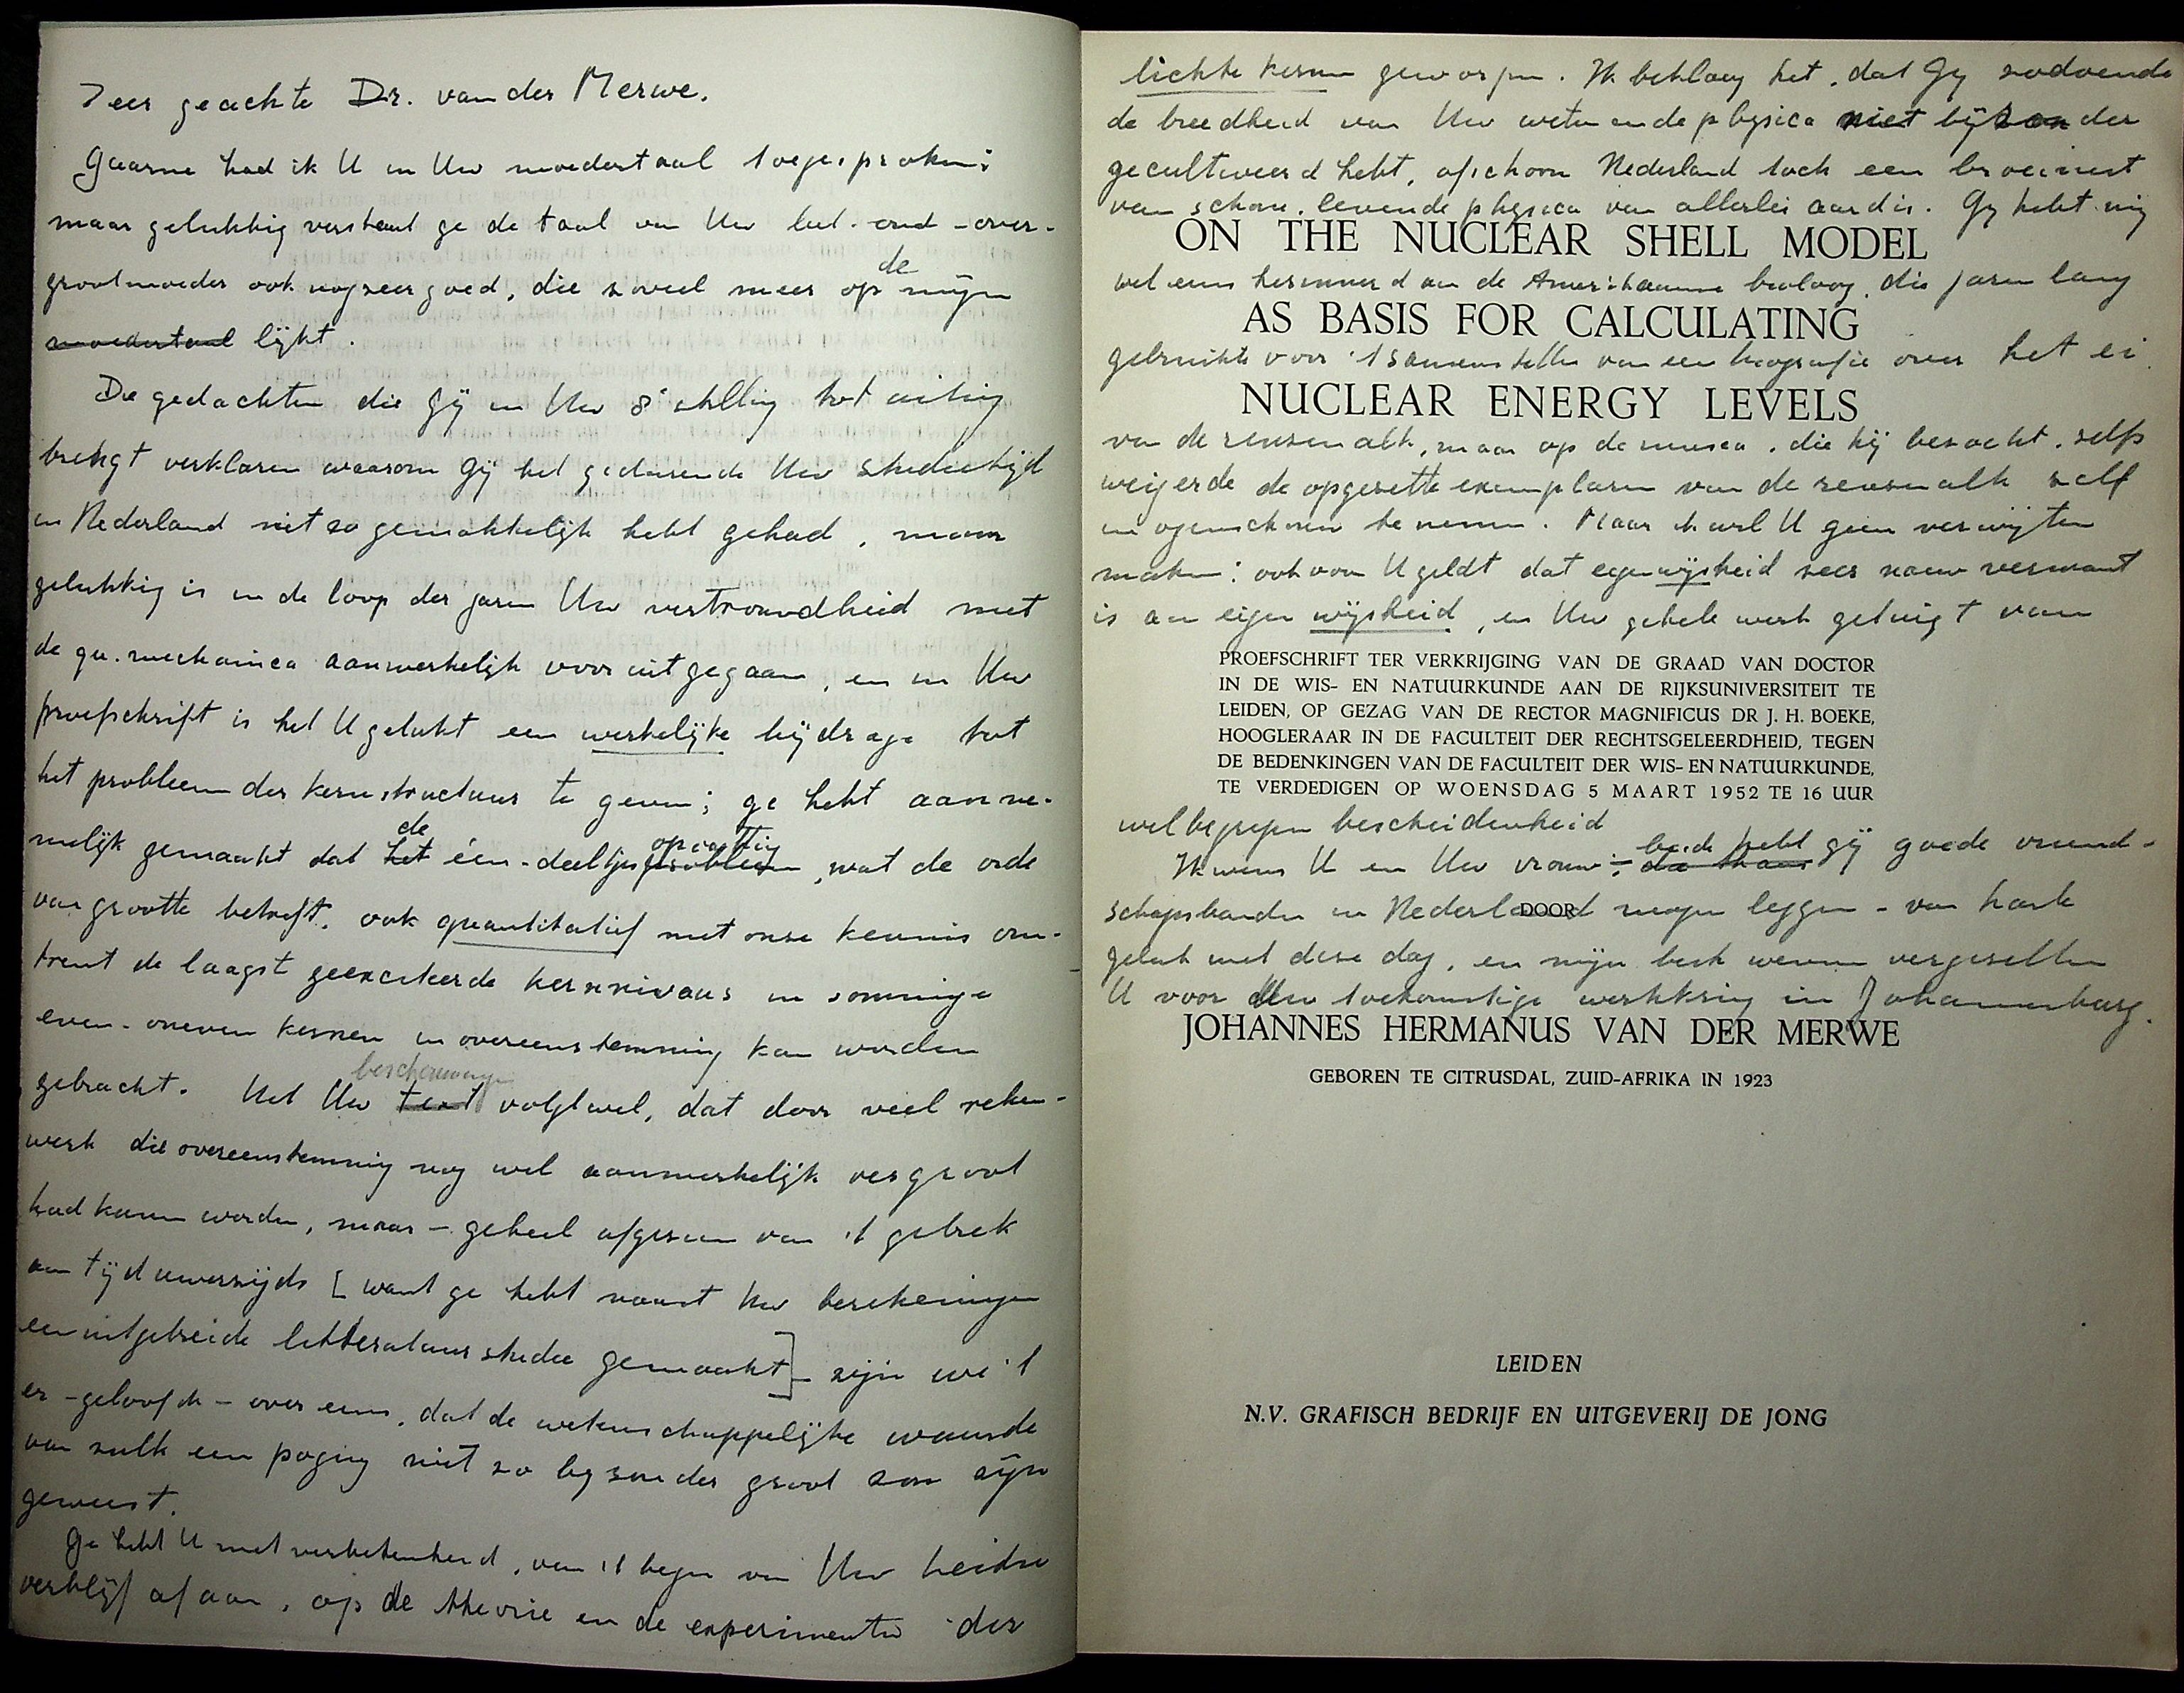 Zeer geachte Dr. van der Merwe.
Gaarne had ik U in Uw moedertaal toegesproken;
maar gelukkig verstaat ge de taal van Uw bet-oud-over-
grootmoeder ook nog zeer goed, die zoveel meer op de mijn
moedertaal lijkt.
De gedachten die Gij in Uw 8e stelling tot uiting
brengt verklaren waarom Gij het gedurende Uw studietijd
in Nederland niet zo gemakkelijk hebt gehad, maar
gelukkig is in de loop der jaren Uw vertrouwdheid met
de qu. mechanica aanmerkelijk vooruitgegaan, en in Uw
proefschrift is het U gelukt een werkelijke bijdrage tot
het probleem der kernstructuur te geven; ge hebt aanne-
melijk gemaakt dat het de één-deeltjesprobleem opvatting, wat de orde
van grootte betreft, ook quantitatief met onze kennis om-
trent de laagst geexciteerde kernniveaus in sommige
even-oneven kernen in overeenstemming kan worden
gebracht. Uit Uw text beschouwingen volgt wel, dat door veel reken-
werk die overeenstemming nog wel aanmerkelijk vergroot
had kunnen worden, maar – geheel afgezien van 't gebrek
aan tijd uwerzijds [want ge hebt naast Uw berekeningen
een uitgebreide litteratuurstudie gemaakt] – zijn we 't
er – geloof ik – over eens, dat de wetenschappelijke waarde
van zulk een poging niet zo bijzonder groot zou zijn
geweest.
Ge hebt U met verbetenheid, van 't begin van Uw Leidse
verblijf af aan, op de theorie en de experimenten der
lichte kernen geworpen. Ik beklaag het, dat Gij zodoende
de breedheid van Uw weten in de physica niet bijzonder
gecultiveerd hebt, ofschoon Nederland toch een broeinest
van schone, levende physica van allerlei aard is. Gij hebt mij
ON THE NUCLEAR SHELL MODEL
wel eens herinnerd aan de Amerikaanse bioloog, die jaren lang
AS BASIS FOR CALCULATING
gebruikte voor 't samenstellen van een biografie over het ei
NUCLEAR ENERGY LEVELS
van de reuzenalk, maar op de musea, die hij bezocht, zelfs
weigerde de opgezette exemplaren van de reuzenalk zelf
in ogenschouw te nemen. Maar ik wil U geen verwijten
maken: ook voor U geldt dat eigenwijsheid zeer nauw verwant
is aan eigen wijsheid, en Uw gehele werk getuigt van
PROEFSCHRIFT TER VERKRIJGING VAN DE GRAAD VAN DOCTOR
IN DE WIS- EN NATUURKUNDE AAN DE RIJKSUNIVERSITEIT TE
LEIDEN, OP GEZAG VAN DE RECTOR MAGNIFICUS DR J. H. BOEKE,
HOOGLERAAR IN DE FACULTEIT DER RECHTSGELEERDHEID, TEGEN
DE BEDENKINGEN VAN DE FACULTEIT DER WIS- EN NATUURKUNDE,
TE VERDEDIGEN OP WOENSDAG 5 MAART 1952 TE 16 UUR
welbegrepen bescheidenheid
Ik wens U en Uw vrouw – beide hebt gij goede vriend-
schapsbanden in Nederland mogen leggen – van harte
DOOR
geluk met deze dag, en mijn beste wensen vergezellen
U voor Uw toekomstige werkkring in Johannesburg.
JOHANNES HERMANUS VAN DER MERWE
GEBOREN TE CITRUSDAL, ZUID-AFRIKA IN 1923
LEIDEN
N.V. GRAFISCH BEDRIJF EN UITGEVERIJ DE JONG